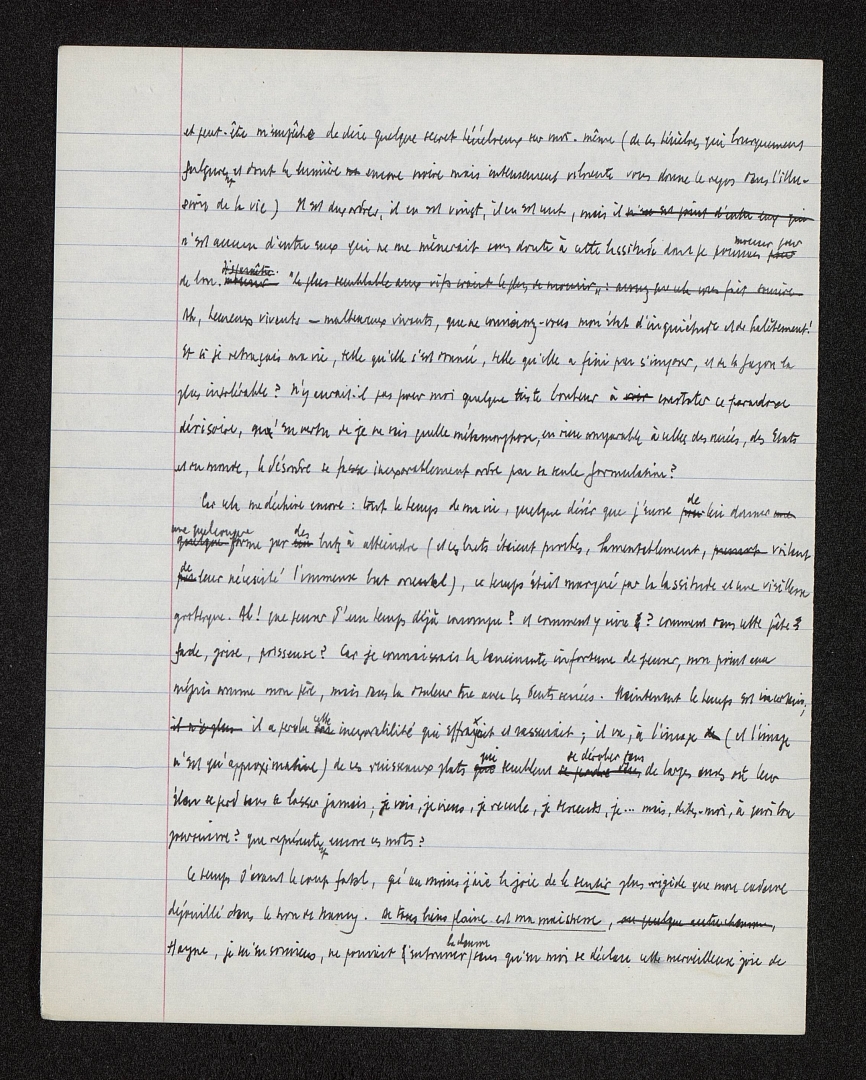 et peut-être m'empêche de dire quelque secret ténébreux sur moi-même (de ces ténèbres qui brusquement
fulgurent et dont la lumière encore noire mais intensément vibrante vous donne le repos dans l'illu-
sion de la vie) Il est dix ordres, il en est vingt, il en est cent, mais il n'en est point d'entre eux qui
n'est aucun d'entre eux qui ne me mènerait sans doute à cette lassitude dont je pourrais mourir pour
de bon. disparaître. mourir "le plus semblable aux vifs craint le plus de mourir" : avouez que cela vous fait sourire
Ah, heureux vivants — malheureux vivants, que ne connaissez-vous mon état d'inquiétude et de halètement!
Et si je retraçais ma vie, telle qu'elle s'est donnée, telle qu'elle a fini par s'imposer, et de la façon la
plus intolérable? N'y aurait-il pas pour moi quelque triste bonheur à voir constater ce paradoxe
dérisoire, qu'en vertu de je ne sais quelle métamorphose, en rien comparable à celles des nuées, des Etats
et du monde, le désordre se fasse inexorablement ordre par sa seule formulation?
Car cela me déchire encore : tout le temps de ma vie, quelque désir que j'eusse de lui donner une
une quelconque
quelque forme par des buts à atteindre (et ces buts étaient proches, lamentablement, voilant
de leur nécessité l'immense but), ce temps était marqué par la lassitude et une vieillesse
grotesque. Ah! que penser d'un temps déjà corrompu? et comment y vivre? comment dans cette fête
fade, grise, poisseuse? Car je connaissais la lancinante infortune de penser, non point au
mépris comme mon père, mais dans la douleur les dents serrées. Maintenant le temps est incertain,
il n'a plus il a perdu cette inexorabilité qui effrayait et rassurait; il va, à l'image de (et l'image
n'est qu'approximative) de ces ruisseaux plats qui semblent se dérober dans se perdre dans de larges anses où leur
élan se perd sans se lasser jamais; je vais, je viens, je recule, je descends, je... mais, dites-moi, à quoi bon
poursuivre? que représentent encore ces mots?
Ce temps d'avant le coup fatal, qu'au moins j'aie la joie de le sentir plus rigide que mon cadavre
dépouillé dans le bon de Nancy. De tous biens plaine est ma maistresse, ou quelque autre chanson,
Hayne, je m'en souviens, ne pouvait l'entonner la chanson sans qu'en moi se déclare cette merveilleuse joie de